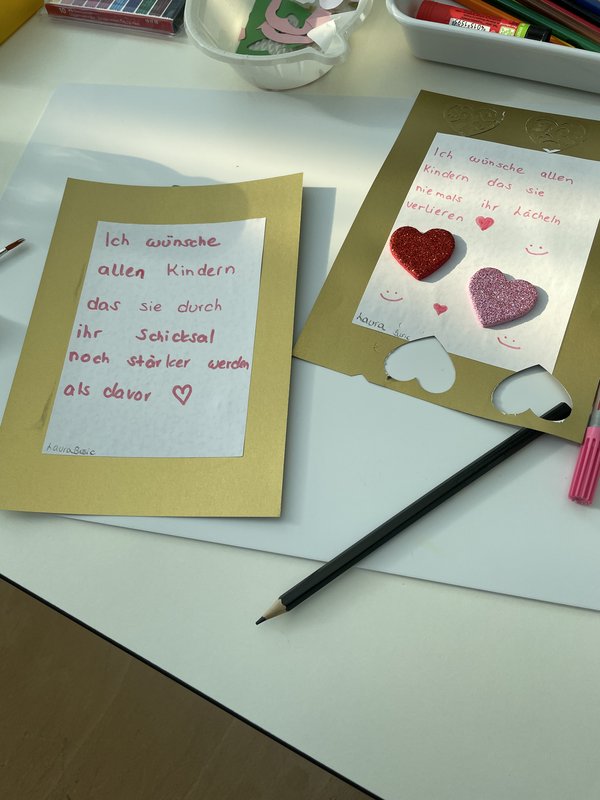 Ich wünsche
allen Kindern
das sie durch
ihr Schicksal
noch stärker werden
als davor
Laura
Ich wünsche allen
Kindern das sie
niemals ihr Lächeln
verlieren
Laura